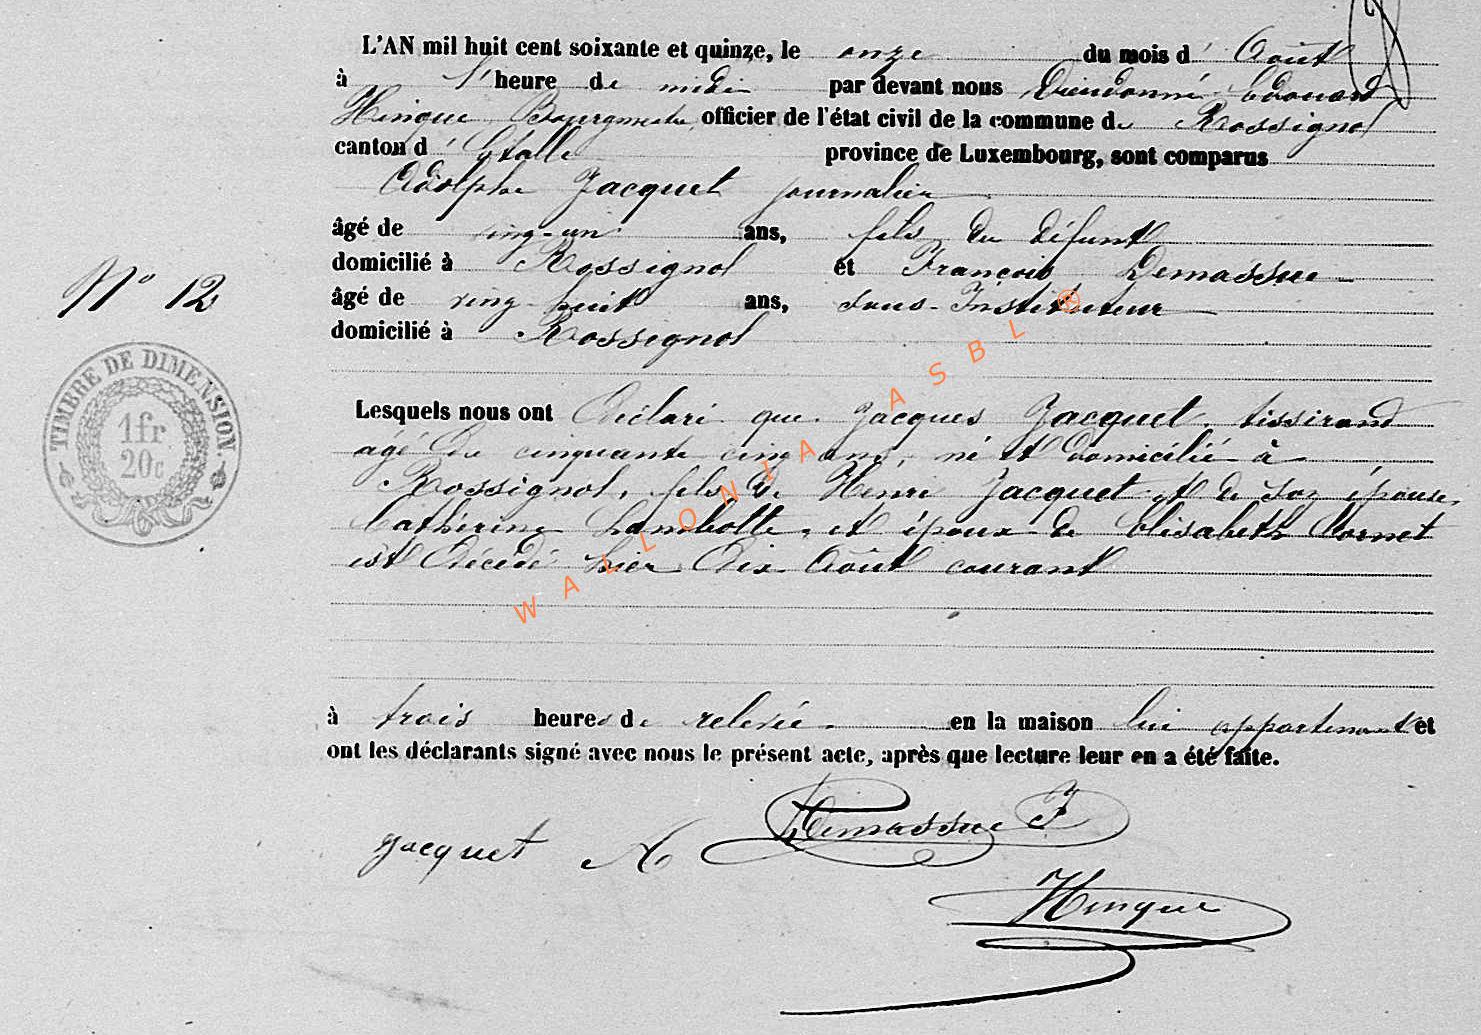 L'AN mil huit cent soixante et quinze, le onze du mois d' Août
à l'heure de midi par devant nous Dieudonné Edouard
Hinque Bourgmestre officier de l'état civil de la commune de Rossignol
canton d' Etalle province de Luxembourg, sont comparus
Adolphe Jacquet journalier
âgé de ving-un ans, fils du défunt
domicilié à Rossignol et François Demassue
âgé de ving huit ans, sous-Instituteur
domicilié à Rossignol
N° 12
TIMBRE DE DIMENSION.
1fr
20c
Lesquels nous ont Déclaré que Jacques Jacquet, tisserand
agé de cinquante cinq ans, né et domicilié à
Rossignol, fils de Henri Jacquet et de son épouse
Catherine Lambotte, et époux de Elisabeth Cornet
est décédé hier dix Août courant
à trois heures de relevée en la maison lui appartenant et
ont les déclarants signé avec nous le présent acte, après que lecture leur en a été faite.
Jacquet A Demassue F
Hinque
WALLONIA ASBL ®